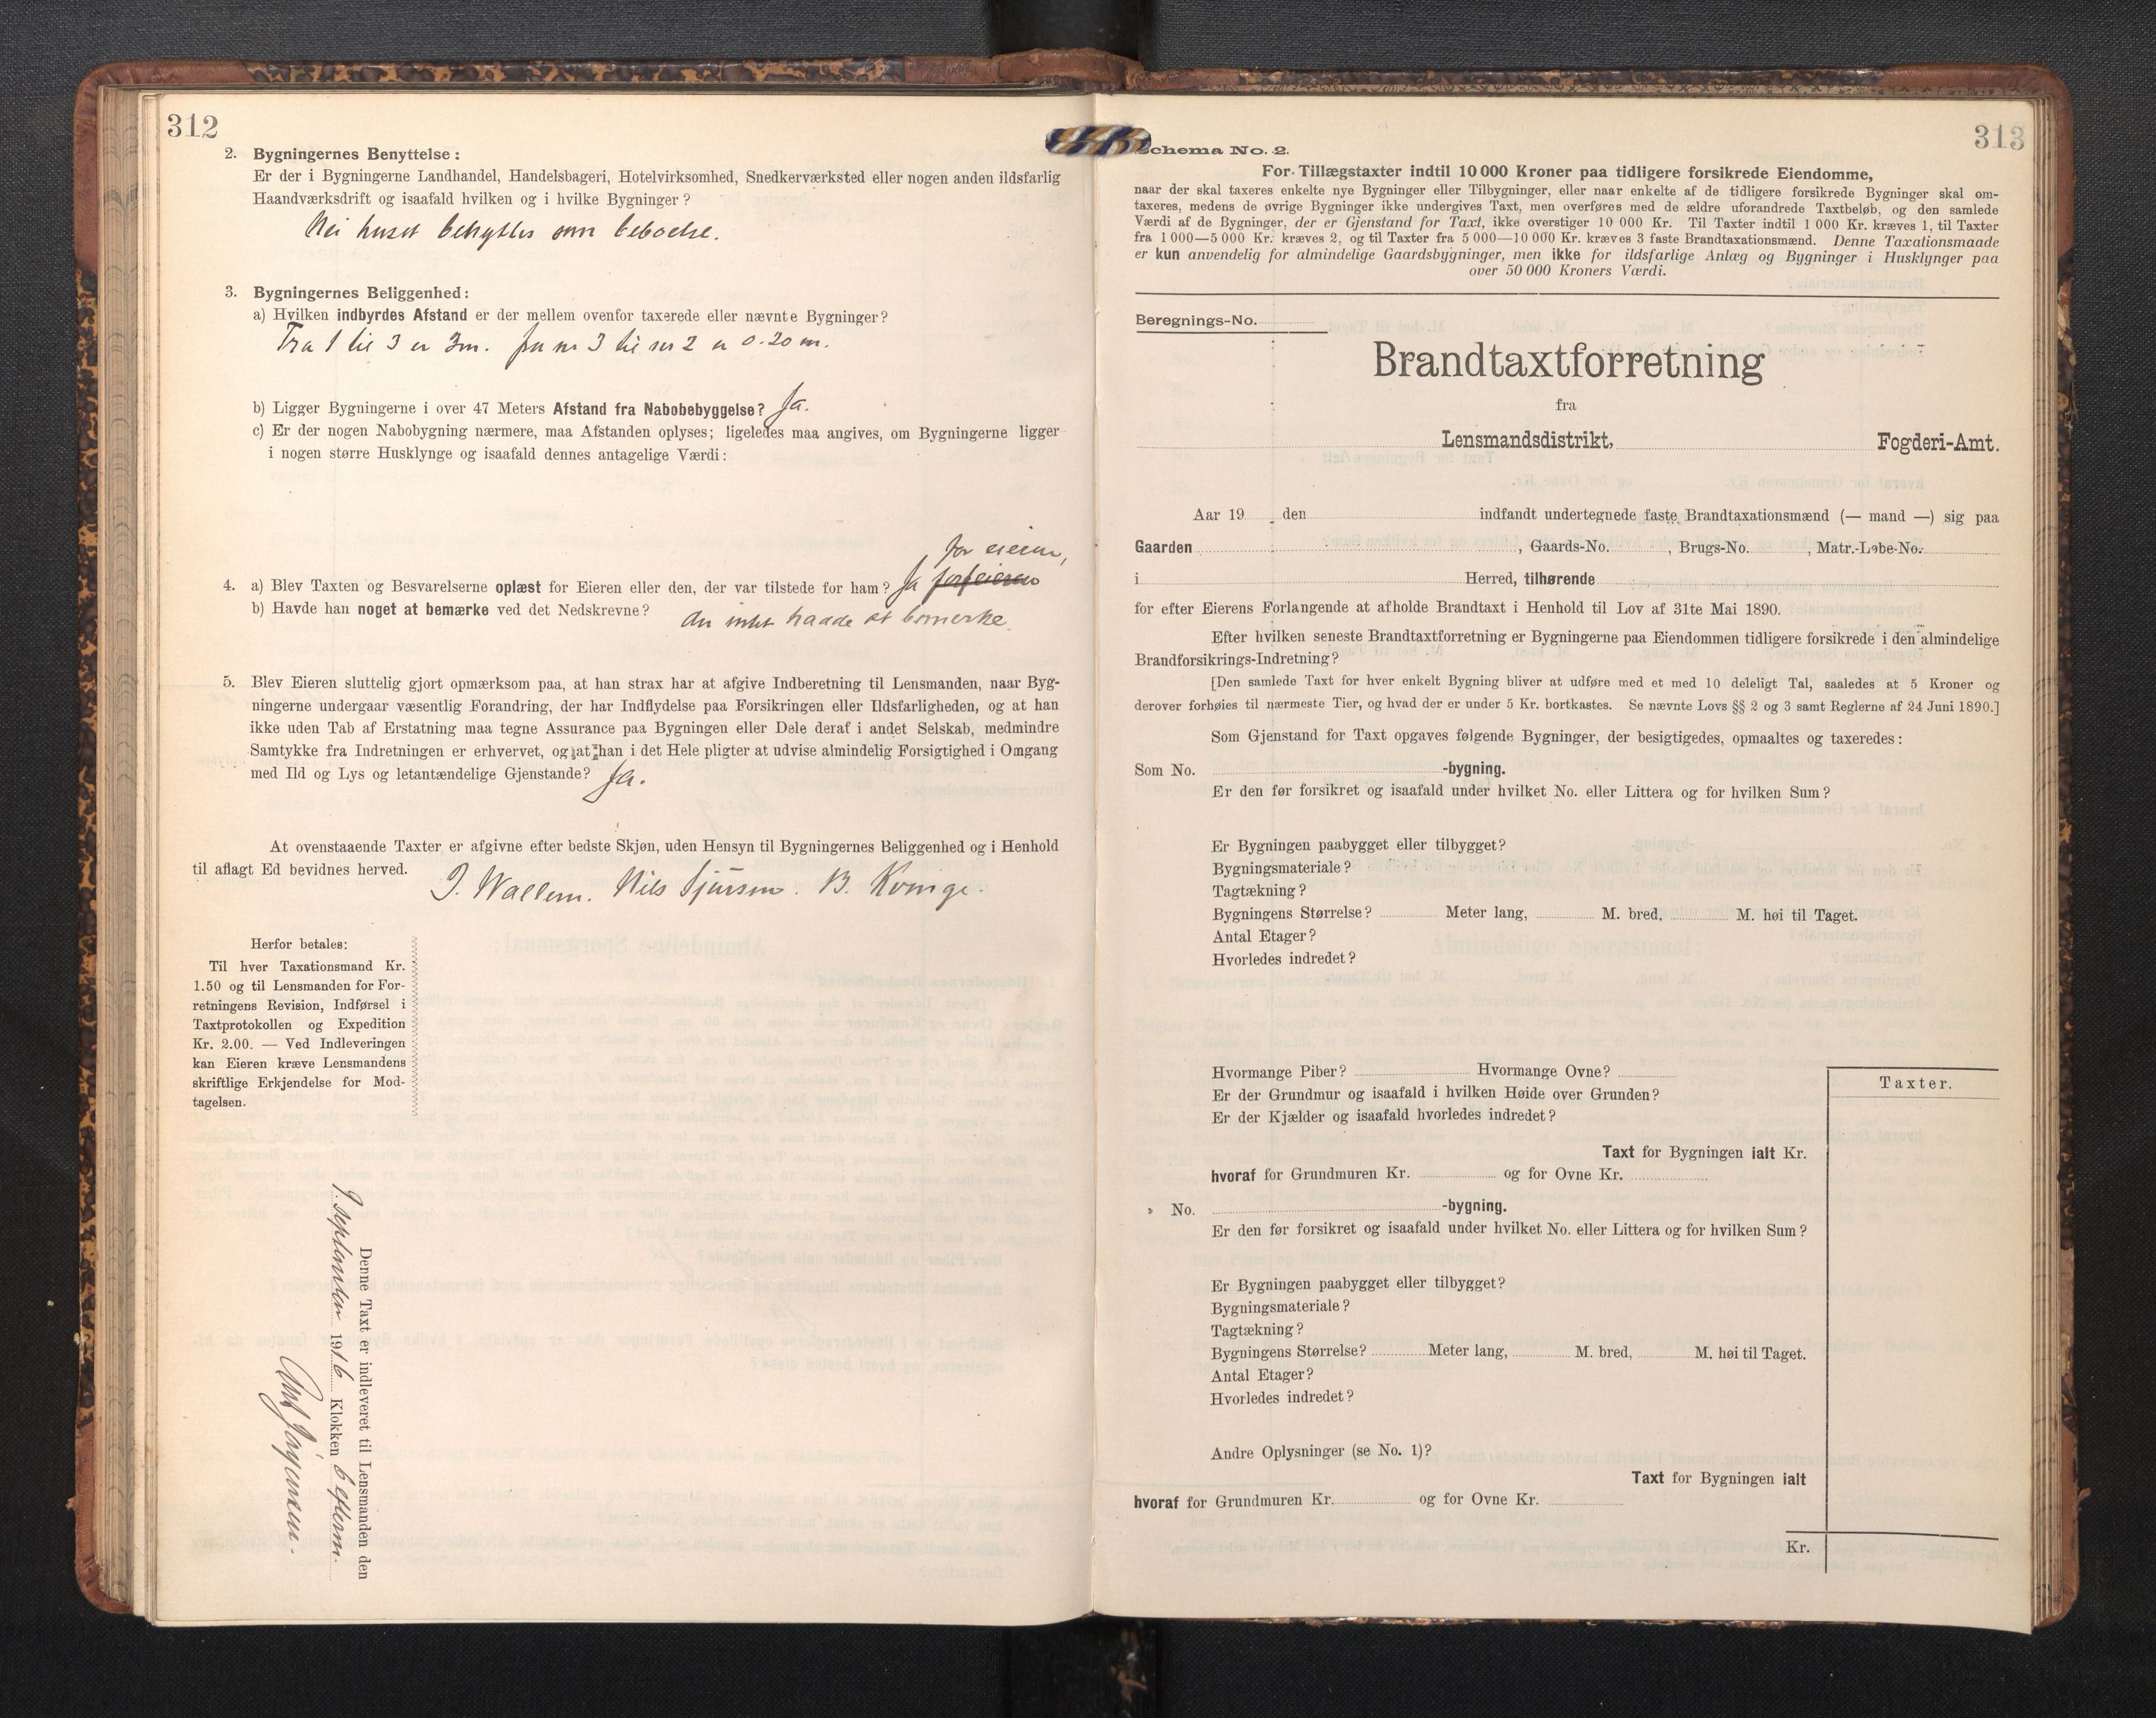 312
2. Bygningernes Benyttelse:
Er der i Bygningerne Landhandel, Handelsbageri, Hotelvirksomhed, Snedkerværksted eller nogen anden ildsfarlig
Haandværksdrift og isaafald hvilken og i hvilke Bygninger?
Nei huset behyttes som beboelse.
3. Bygningernes Beliggenhed:
a) Hvilken indbyrdes Afstand er der mellem ovenfor taxerede eller nævnte Bygninger?
Fra 1 til 3 er 3m. fra nr 3 til nr 2 er 0.20 m.
b) Ligger Bygningerne i over 47 Meters Afstand fra Nabobebyggelse? Ja.
c) Er der nogen Nabobygning nærmere, maa Afstanden oplyses; ligeledes maa angives, om Bygningerne ligger
i nogen større Husklynge og isaafald dennes antagelige Værdi:
for eieren,
4. a) Blev Taxten og Besvarelserne oplæst for Eieren eller den, der var tilstede for ham? Ja for eieren
b) Havde han noget at bemærke ved det Nedskrevne?
der intet havde at bemerke
5. Blev Eieren sluttelig gjort opmærksom paa, at han strax har at afgive Indberetning til Lensmanden, naar Byg-
ningerne undergaar væsentlig Forandring, der har Indflydelse paa Forsikringen eller Ildsfarligheden, og at han
ikke uden Tab af Erstatning maa tegne Assurance paa Bygningen eller Dele deraf i andet Selskab, medmindre
Samtykke fra Indretningen er erhvervet, og at han i det Hele pligter at udvise almindelig Forsigtighed i Omgang
med Ild og Lys og letantændelige Gjenstande? Ja.
At ovenstaaende Taxter er afgivne efter bedste Skjøn, uden Hensyn til Bygningernes Beliggenhed og i Henhold
til aflagt Ed bevidnes herved.
J. Wallem. Nils Sjursen. B. Kvinge.
Herfor betales:
Til hver Taxationsmand Kr.
1.50 og til Lensmanden for For-
retningens Revision, Indførsel i
Taxtprotokollen og Expedition
Kr. 2.00. — Ved Indleveringen
kan Eieren kræve Lensmandens
skriftlige Erkjendelse for Mod-
tagelsen.
Denne Taxt er indleveret til Lensmanden den
9 september 1916 Klokken 6 efterm.
313
Schema No. 2.
For Tillægstaxter indtil 10 000 Kroner paa tidligere forsikrede Eiendomme,
naar der skal taxeres enkelte nye Bygninger eller Tilbygninger, eller naar enkelte af de tidligere forsikrede Bygninger skal om-
taxeres, medens de øvrige Bygninger ikke undergives Taxt, men overføres med de ældre uforandrede Taxtbeløb, og den samlede
Værdi af de Bygninger, der er Gjenstand for Taxt, ikke overstiger 10 000 Kr. Til Taxter indtil 1 000 Kr. kræves 1, til Taxter
fra 1 000—5 000 Kr. kræves 2, og til Taxter fra 5 000—10 000 Kr. kræves 3 faste Brandtaxationsmænd. Denne Taxationsmaade
er kun anvendelig for almindelige Gaardsbygninger, men ikke for ildsfarlige Anlæg og Bygninger i Husklynger paa
over 50 000 Kroners Værdi.
Beregnings-No.
Brandtaxtforretning
fra
Lensmandsdistrikt, Fogderi-Amt.
Aar 19 den indfandt undertegnede faste Brandtaxationsmænd (— mand —) sig paa
Gaarden , Gaards-No. , Brugs-No. , Matr.-Løbe-No.
i Herred, tilhørende
for efter Eierens Forlangende at afholde Brandtaxt i Henhold til Lov af 31te Mai 1890.
Efter hvilken seneste Brandtaxtforretning er Bygningerne paa Eiendommen tidligere forsikrede i den almindelige
Brandforsikrings-Indretning?
[Den samlede Taxt for hver enkelt Bygning bliver at udføre med et med 10 deleligt Tal, saaledes at 5 Kroner og
derover forhøies til nærmeste Tier, og hvad der er under 5 Kr. bortkastes. Se nævnte Lovs §§ 2 og 3 samt Reglerne af 24 Juni 1890.]
Som Gjenstand for Taxt opgaves følgende Bygninger, der besigtigedes, opmaaltes og taxeredes:
Som No. -bygning.
Er den før forsikret og isaafald under hvilket No. eller Littera og for hvilken Sum?
Er Bygningen paabygget eller tilbygget?
Bygningsmateriale?
Tagtækning?
Bygningens Størrelse? Meter lang, M. bred, M. høi til Taget.
Antal Etager?
Hvorledes indredet?
Hvormange Piber? Hvormange Ovne?
Taxter.
Er der Grundmur og isaafald i hvilken Høide over Grunden?
Er der Kjælder og isaafald hvorledes indredet?
Taxt for Bygningen ialt Kr.
hvoraf for Grundmuren Kr. og for Ovne Kr.
» No. -bygning.
Er den før forsikret og isaafald under hvilket No. eller Littera og for hvilken Sum?
Er Bygningen paabygget eller tilbygget?
Bygningsmateriale?
Tagtækning?
Bygningens Størrelse? Meter lang, M. bred, M. høi til Taget.
Antal Etager?
Hvorledes indredet?
Andre Oplysninger (se No. 1)?
Taxt for Bygningen ialt
hvoraf for Grundmuren Kr. og for Ovne Kr.
Kr.